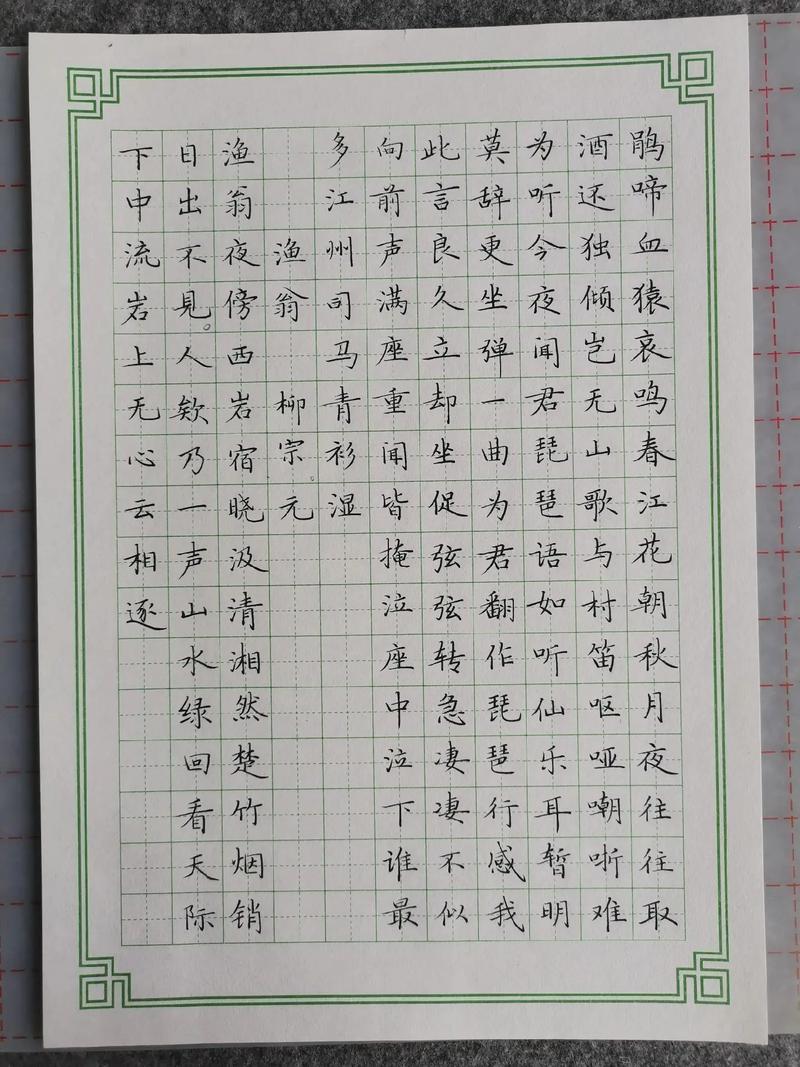 鹃啼血猿哀鸣春江花朝秋月夜往往取
酒还独倾岂无山歌与村笛呕哑嘲哳难
为听今夜闻君琵琶语如听仙乐耳暂明
莫辞更坐弹一曲为君翻作琵琶行感我
此言良久立却坐促弦弦转急凄凄不似
向前声满座重闻皆掩泣座中泣下谁最
多江州司马青衫湿
渔翁 柳宗元
渔翁夜傍西岩宿晓汲清湘然楚竹烟销
日出不見。人欸乃一声山水绿回看天际
下中流岩上无心云相逐